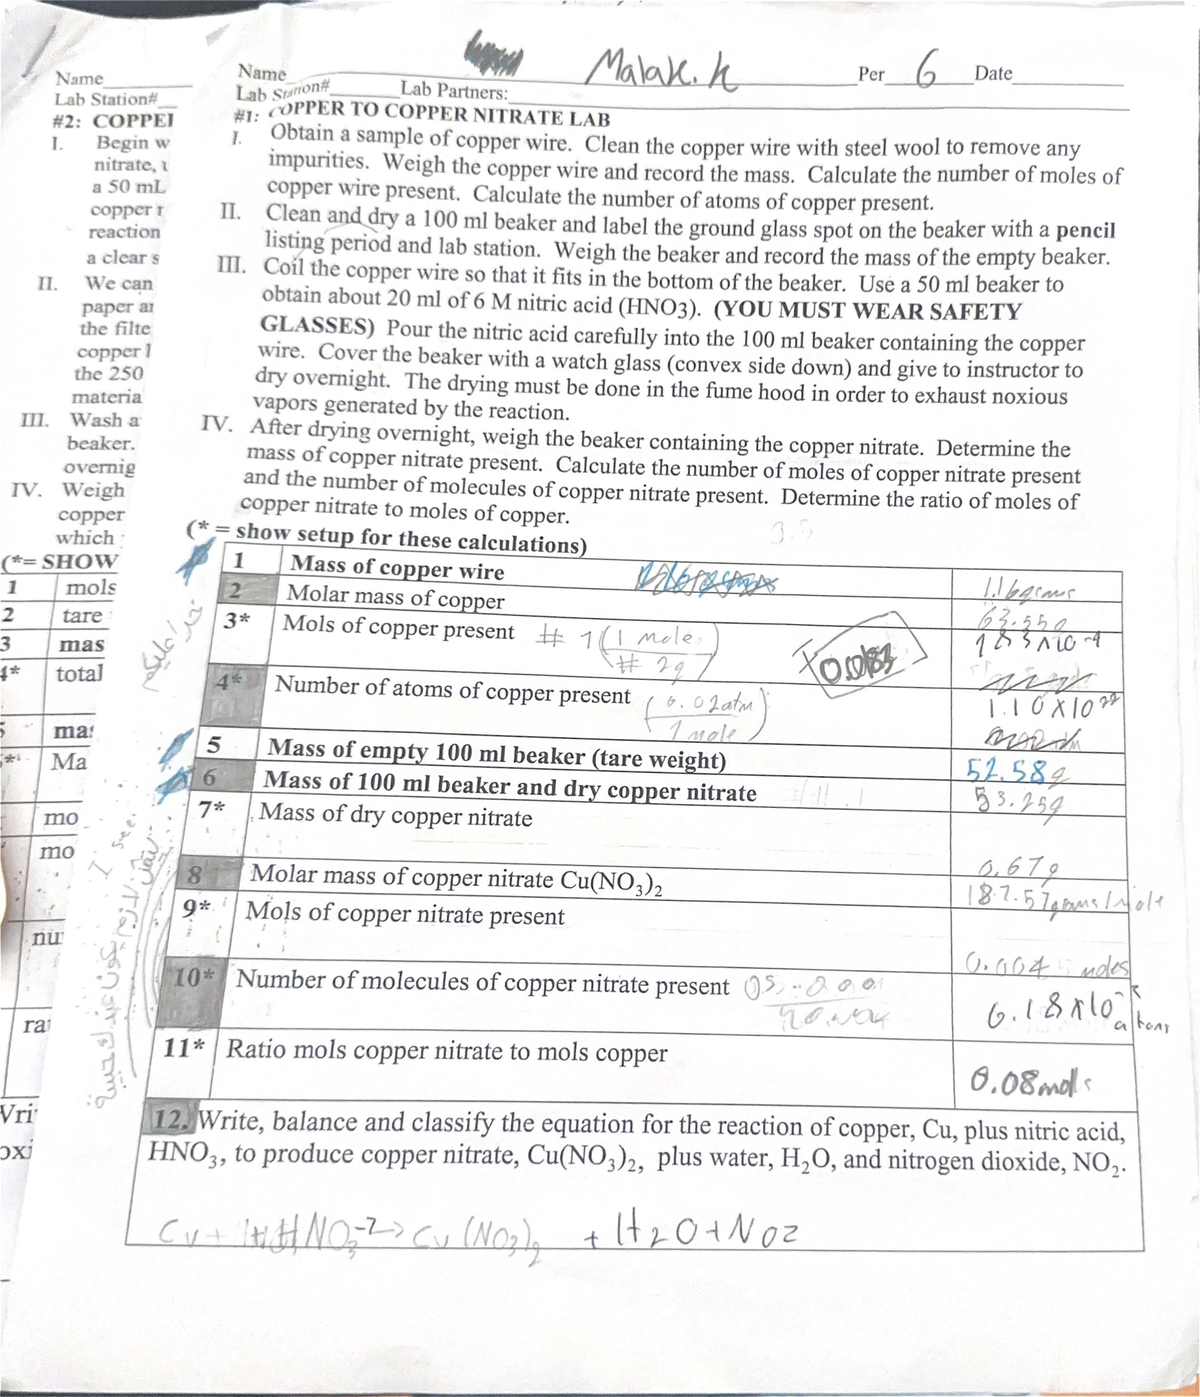 Name
Lab Station#
#2: COPPE
I. Begin w
nitrate,
a 50 mL
copper
reaction
a clear s
II. We can
paper
the filte
copper
the 250
materia
III. Wash a
beaker.
overnig
IV. Weigh
copper
which
(*= SHOW
1 mols
2 tare
3 mas
4* total
ma
Ma
mo
mo
nu
ra
Name Malak.k Per 6 Date
Lab Station# Lab Partners:
#1: COPPER TO COPPER NITRATE LAB
I. Obtain a sample of copper wire. Clean the copper wire with steel wool to remove any
impurities. Weigh the copper wire and record the mass. Calculate the number of moles of
copper wire present. Calculate the number of atoms of copper present.
II. Clean and dry a 100 ml beaker and label the ground glass spot on the beaker with a pencil
listing period and lab station. Weigh the beaker and record the mass of the empty beaker.
III. Coil the copper wire so that it fits in the bottom of the beaker. Use a 50 ml beaker to
obtain about 20 ml of 6 M nitric acid (HNO3). (YOU MUST WEAR SAFETY
GLASSES) Pour the nitric acid carefully into the 100 ml beaker containing the copper
wire. Cover the beaker with a watch glass (convex side down) and give to instructor to
dry overnight. The drying must be done in the fume hood in order to exhaust noxious
vapors generated by the reaction.
IV. After drying overnight, weigh the beaker containing the copper nitrate. Determine the
mass of copper nitrate present. Calculate the number of moles of copper nitrate present
and the number of molecules of copper nitrate present. Determine the ratio of moles of
copper nitrate to moles of copper.
(* = show setup for these calculations)
1 Mass of copper wire 1.16grams
2 Molar mass of copper 63.55g
3* Mols of copper present # 1 (1 mole / # 2g)
4* Number of atoms of copper present (6.02atm / 1 mole) 1.10X10²²
5 Mass of empty 100 ml beaker (tare weight) 52.58g
6 Mass of 100 ml beaker and dry copper nitrate 53.25g
7* Mass of dry copper nitrate 0.67g
8 Molar mass of copper nitrate Cu(NO₃)₂ 187.57grams/mole
9* Mols of copper nitrate present 0.004 moles
10* Number of molecules of copper nitrate present 6.18x10 atoms
11* Ratio mols copper nitrate to mols copper 0.08mols
12. Write, balance and classify the equation for the reaction of copper, Cu, plus nitric acid,
HNO₃, to produce copper nitrate, Cu(NO₃)₂, plus water, H₂O, and nitrogen dioxide, NO₂.
Cu (NO₃)₂ + H₂O+NO2